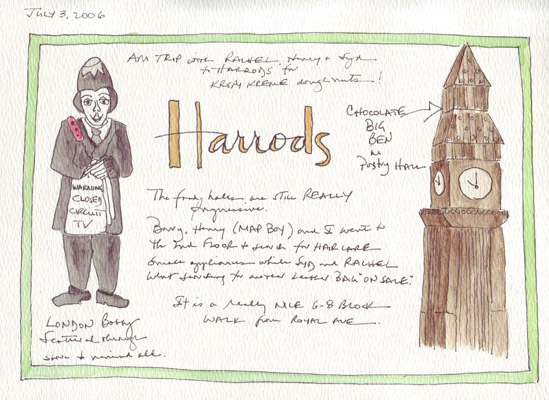 JULY 3, 2006
AM TRIP with RACHEL, Henry + Syd
to HARRODS for
KRISPY KREME doughnuts!
Harrods
CHOCOLATE
BIG
BEN
in
Pastry HALL
WARNING
CLOSED
CIRCUIT
TV
The food halls are still REALLY
impressive.
Henry (MAP BOY) and I went to
the 2nd FLOOR to search for HAIR CARE
small appliances while SYD and RACHEL
went searching for another Leather BAG "ON SALE."
It is a really NICE 6-8 BLOCK
WALK from ROYAL AVE.
LONDON Bobby
store